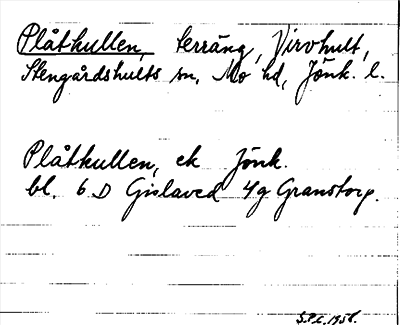 Plåtkullen, terräng, Virvhult,
Stengårdshults sn, Mo hd, Jönk. l.
Plåtkullen, ek Jönk.
bl. 6 D Gislaved 4g Granstorp.
1958.